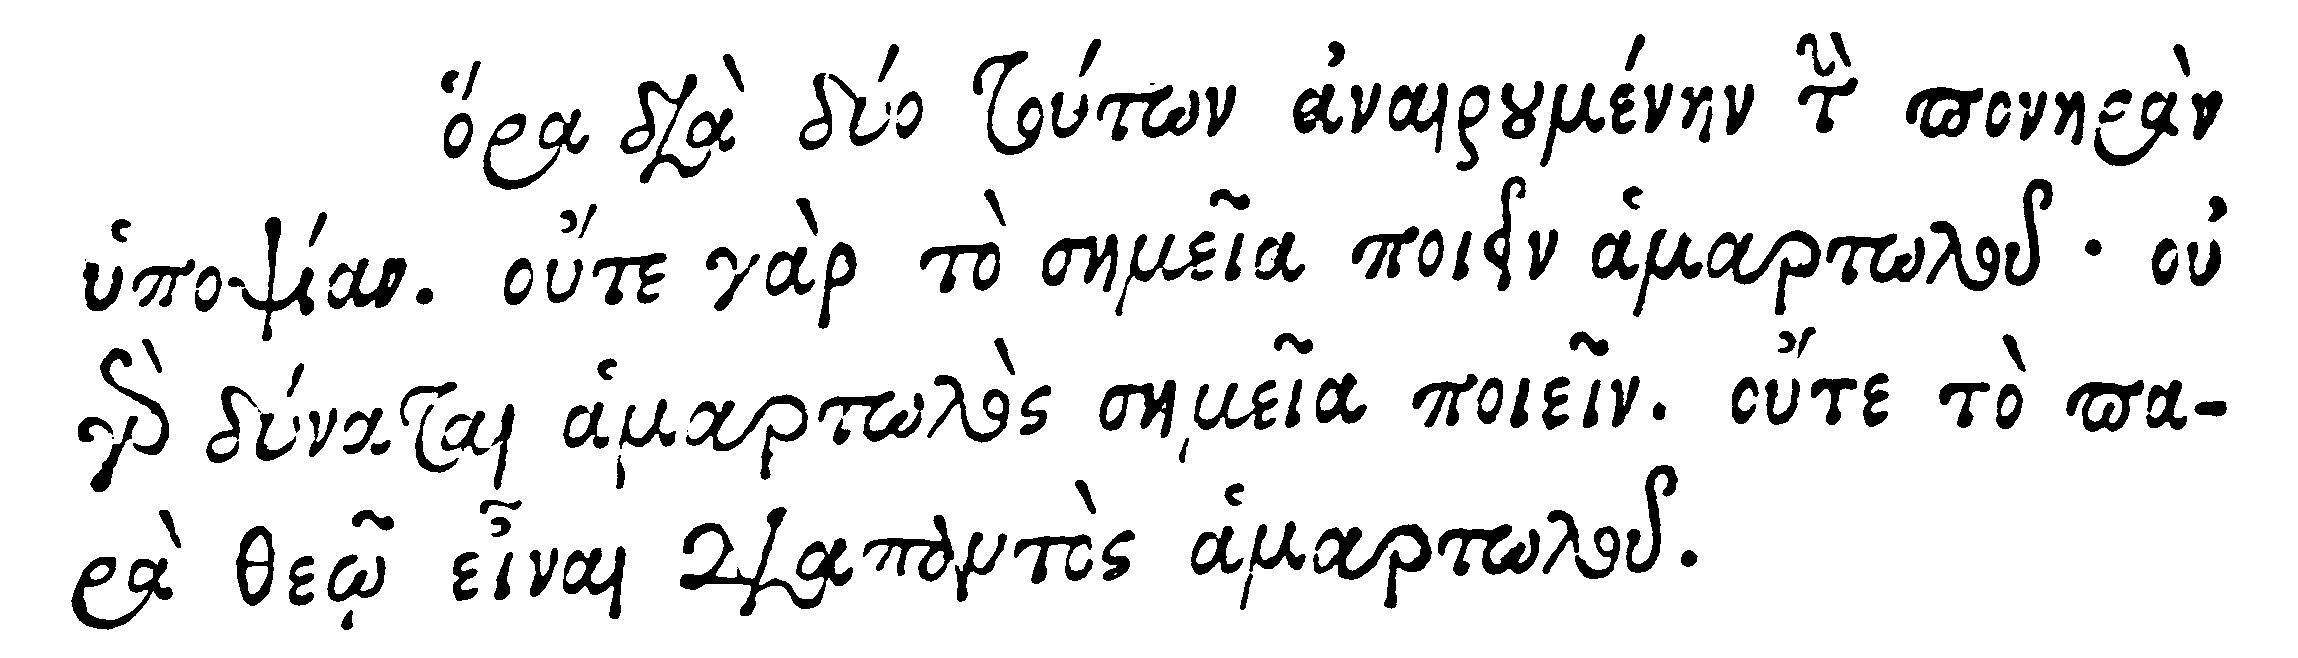 ὅρα διὰ δύο τούτων ἀναιρουμένην τὴν πονηρὰν
ὑποψίαν. οὔτε γὰρ τὸ σημεῖα ποιεῖν ἁμαρτωλοῦ · οὐ
γὰρ δύναται ἁμαρτωλὸς σημεῖα ποιεῖν. οὔτε τὸ πα-
ρὰ θεῷ εἶναι διαπαντὸς ἁμαρτωλοῦ.